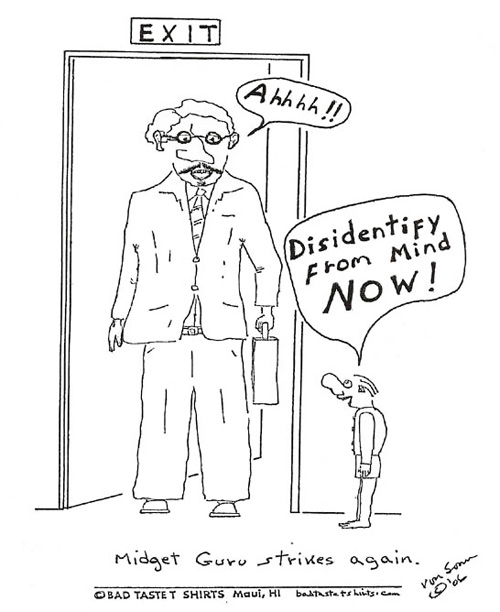 EXIT
Ahhhh!!
Disidentify
From Mind
NOW!
Midget Guru strikes again.
©'06
©BAD TASTE T SHIRTS Maui, HI badtastetshirts.com